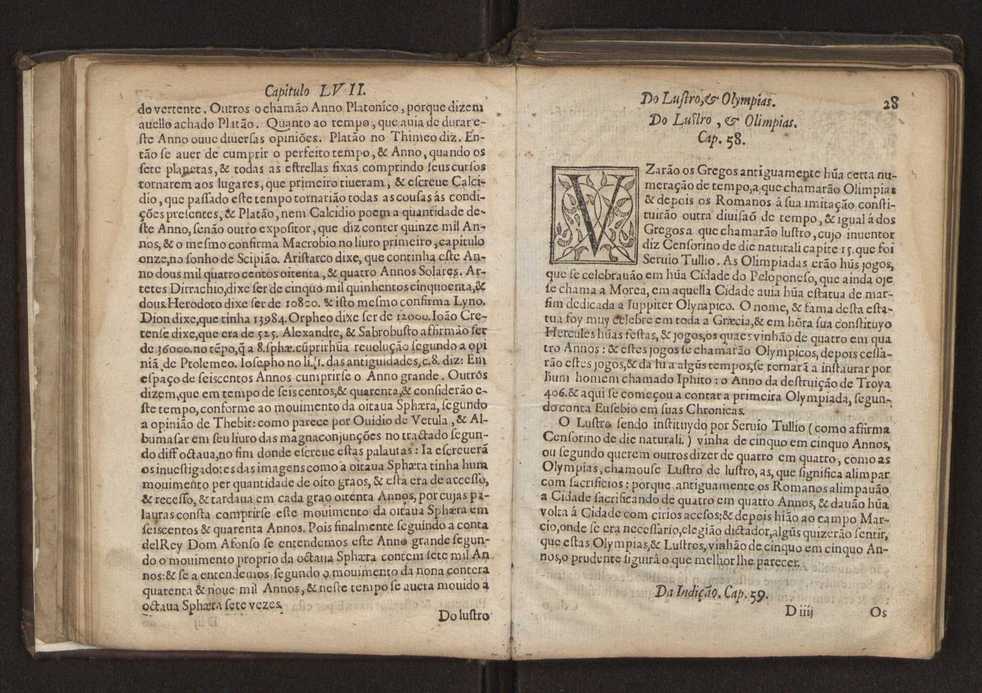 Capitulo LVII.
do vertente. Outros o chamão Anno Platonico, porque dizem
avello achado Platão. Quanto ao tempo, que avia de durar e-
ste Anno ouue diuersas opiniões. Platão no Thimeo diz. En-
tão se auer de cumprir o perfeito tempo, & Anno, quando os
sete planetas, & todas as estrellas fixas comprindo seus cursos
tornarem aos lugares, que primeiro tiueram, & escreue Calci-
dio, que passado este tempo tornarião todas as cousas às condi-
ções presentes, & Platão, nem Calcidio poem a quantidade de-
ste Anno, senão outro expositor, que diz conter quinze mil An-
nos, & o mesmo confirma Macrobio no liuro primeiro, capitulo
onze, no sonho de Scipião. Aristarco dixe, que continha este An-
no dous mil quatro centos oitenta, & quatro Annos Solares. Ar-
tetes Dirrachio, dixe ser de cinquo mil quinhentos cinquoenta, &
dous. Herodoto dixe ser de 10800. & isto mesmo confirma Lyno.
Dion dixe, que tinha 13984. Orpheo dixe ser de 12000. Ioão Cre-
tense dixe, que era de 525. Alexandre, & Sabrobusto afirmão ser
de 36000. no tẽpo, q̃ a 8. sphæ. cũprir hũa reuolução segundo a opi
niã, de Ptolemeo. Iosepho no li. 1. das antiguidades, c. 8. diz: Em
espaço de seiscentos Annos cumprirse o Anno grande. Outros
dizem, que em tempo de seis centos, & quarenta, & considerão e-
ste tempo, conforme ao mouimento da oitaua Sphæra, segundo
a opinião de Thebit: como parece por Ouidio de Vetula, & Al-
bumasar em seu liuro das magnaconjunções no tractado segun-
do diff octaua, no fim donde escreue estas palautas: Ia escreuerã
os inuestigadores das imagens como a oitaua Sphæra tinha hum
mouimento per quantidade de oito graos, & esta era de accesso,
& recesso, & tardaua em cada grao oitenta Annos, por cujas pa-
lauras consta comprirse este mouimento da oitaua Sphæra em
seiscentos & quarenta Annos. Pois finalmente seguindo a conta
delRey Dom Afonso se entendemos este Anno grande segun-
do o mouimento proprio da octaua Sphæra contem sete mil An
nos: & se a entendemos segundo o mouimento da nona contera
quarenta & noue mil Annos, & neste tempo se auera mouido a
octaua Sphæra sete vezes.
Do lustro
Do Lustro, & Olympias. 28
Do Lustro, & Olimpias.
Cap. 58.
VZarão os Gregos antiguamente hũa certa nu-
meração de tempo, a que chamarão Olimpias
& depois os Romanos à sua imitação consti-
tuirão outra diuisaõ de tempo, & igual á dos
Gregos a que chamarão lustro, cujo inuentor
diz Censorino de die naturali capite 15. que foi
Seruio Tullio. As Olimpiadas erão hũs jogos,
que se celebrauão em hũa Cidade do Peloponeso, que ainda oje
se chama a Morea, em aquella Cidade auia hũa estatua de mar-
fim dedicada a Iuppiter Olympico. O nome, & fama desta esta-
tua foy muy celebre em toda a Græcia, & em hõra sua constituyo
Hercules hũas festas, & jogos, os quaes vinhão de quatro em qua
tro Annos: & estes jogos se chamarão Olympicos, depois cessa-
rão estes jogos, & da hi a algũs tempos, se tornarã a instaurar por
hum homem chamado Iphito: o Anno da destruição de Troya
406. & aqui se começou a contar a primeira Olympiada, segun-
do conta Eusebio em suas Chronicas.
O Lustro sendo instituydo por Seruio Tullio (como affirma
Censorino de die naturali.) vinha de cinquo em cinquo Annos,
ou segundo querem outros dizer de quatro em quatro, como as
Olympias, chamouse Lustro de lustro, as, que significa alimpar
com sacrificios: porque antiguamente os Romanos alimpauão
a Cidade sacrificando de quatro em quatro Annos, & dauão hũa
volta á Cidade com cirios acesos; & depois hião ao campo Mar-
cio, onde se era necessario, elegião dictador, algũs quizerão sentir,
que estas Olympias, & Lustros, vinhão de cinquo em cinquo An-
nos, o prudente siguirá o que melhor lhe parecer.
Da Indição. Cap. 59.
D iiij Os